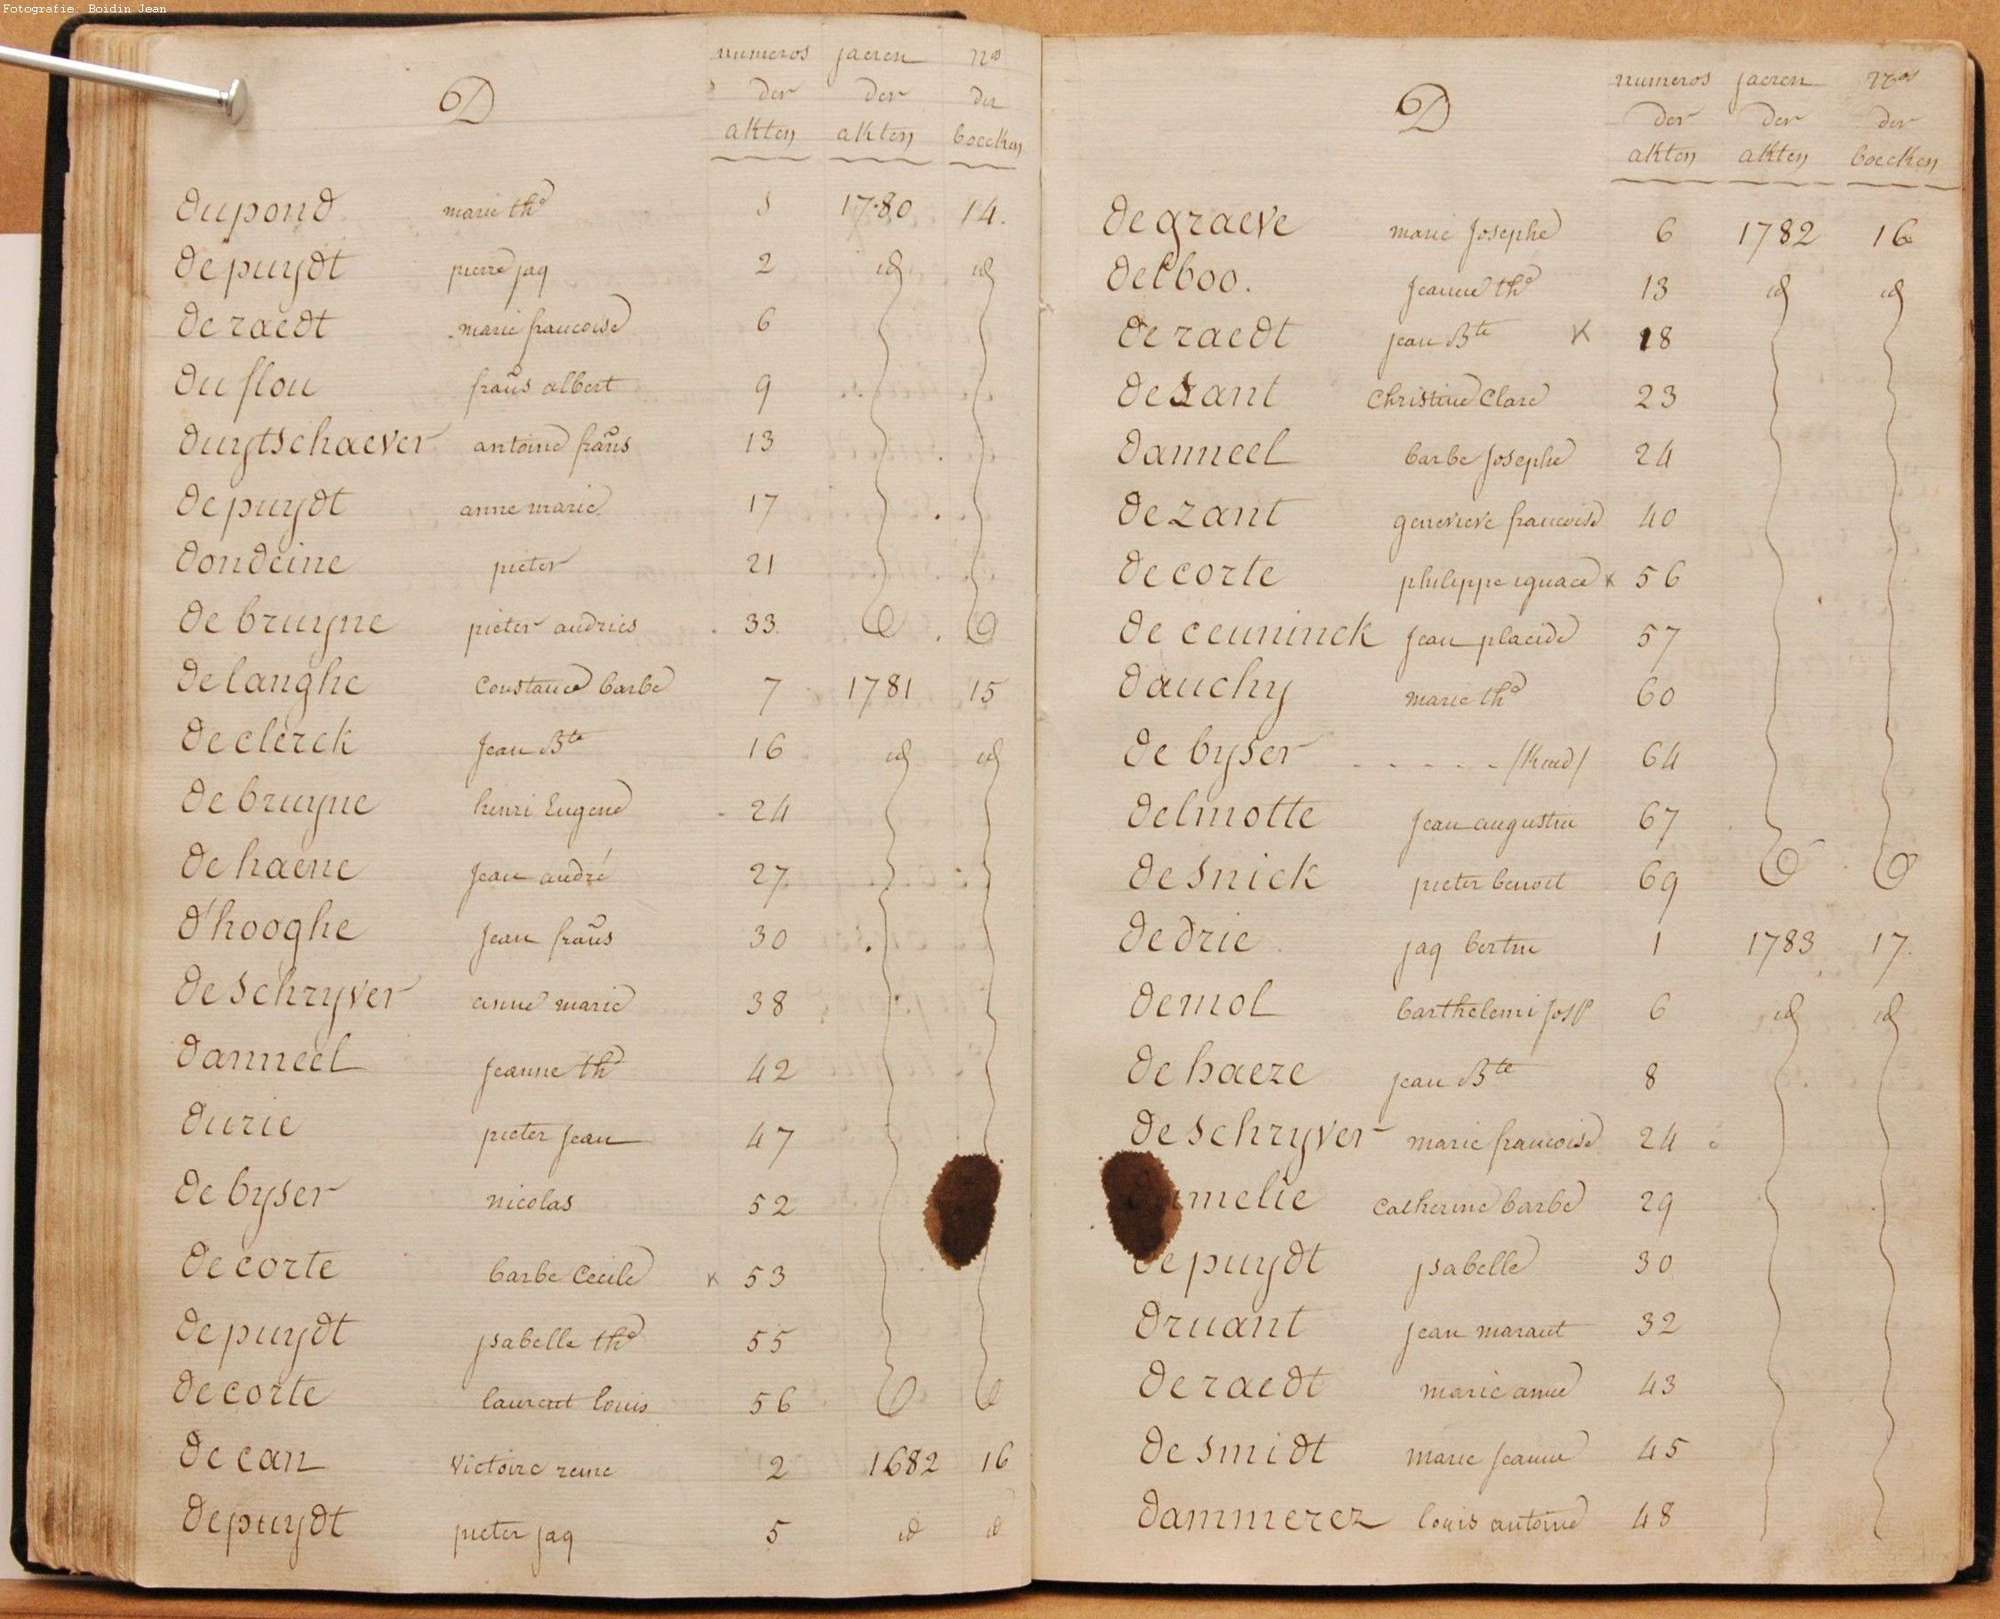 Fotografie: Boidin Jean
D
numeros jaeren nos
der der der
akten akten boecken
dupond marie the 1780 14.
depuydt pierre jaq 2 id id
de raedt marie francoise 6
du flou frans albert 9
duytschaever antoine frans 13
depuydt anne marie 17
dondeine pieter 21
de bruyne pieter andries 33
delanghe Constance barbe 7 1781 15
de clerck Jean Bte 16 id id
de bruyne henri Eugene 24
de haene Jean andré 27
d'hooghe Jean frans 30
de schryver anne marie 38
danneel Jeanne the 42
durie pieter Jean 47
de byser nicolas 52
de corte barbe Cecile x 53
depuydt ysabelle the 55
de corte laurent louis 56
de can Victoire reine 2 1682 16
depuydt pieter jaq 5 id id
D
numeros jaeren nos
der der der
akten akten boecken
de graeve marie Josephe 6 1782 16
delboo. Jeanne the 13 id id
de raedt jean Bte x 18
dezant Christine Clare 23
danneel barbe Josephe 24
de zant genevieve francoise 40
de corte philippe ignace x 56
de ceuninck Jean placide 57
dauchy marie the 60
de byser - - - - - /Kind/ 64
delmotte Jean augustin 67
desnick pieter benoit 69
dedrie jaq bertin 1 1783 17.
demol barthelemi Josp 6 id id
de haeze jean Bte 8
de schryver marie francoise 24
melie Catherine barbe 29
depuydt ysabelle 30
druant jean maraut 32
de raedt marie anne 43
de smidt marie Jeanne 45
dammerez louis antoine 48